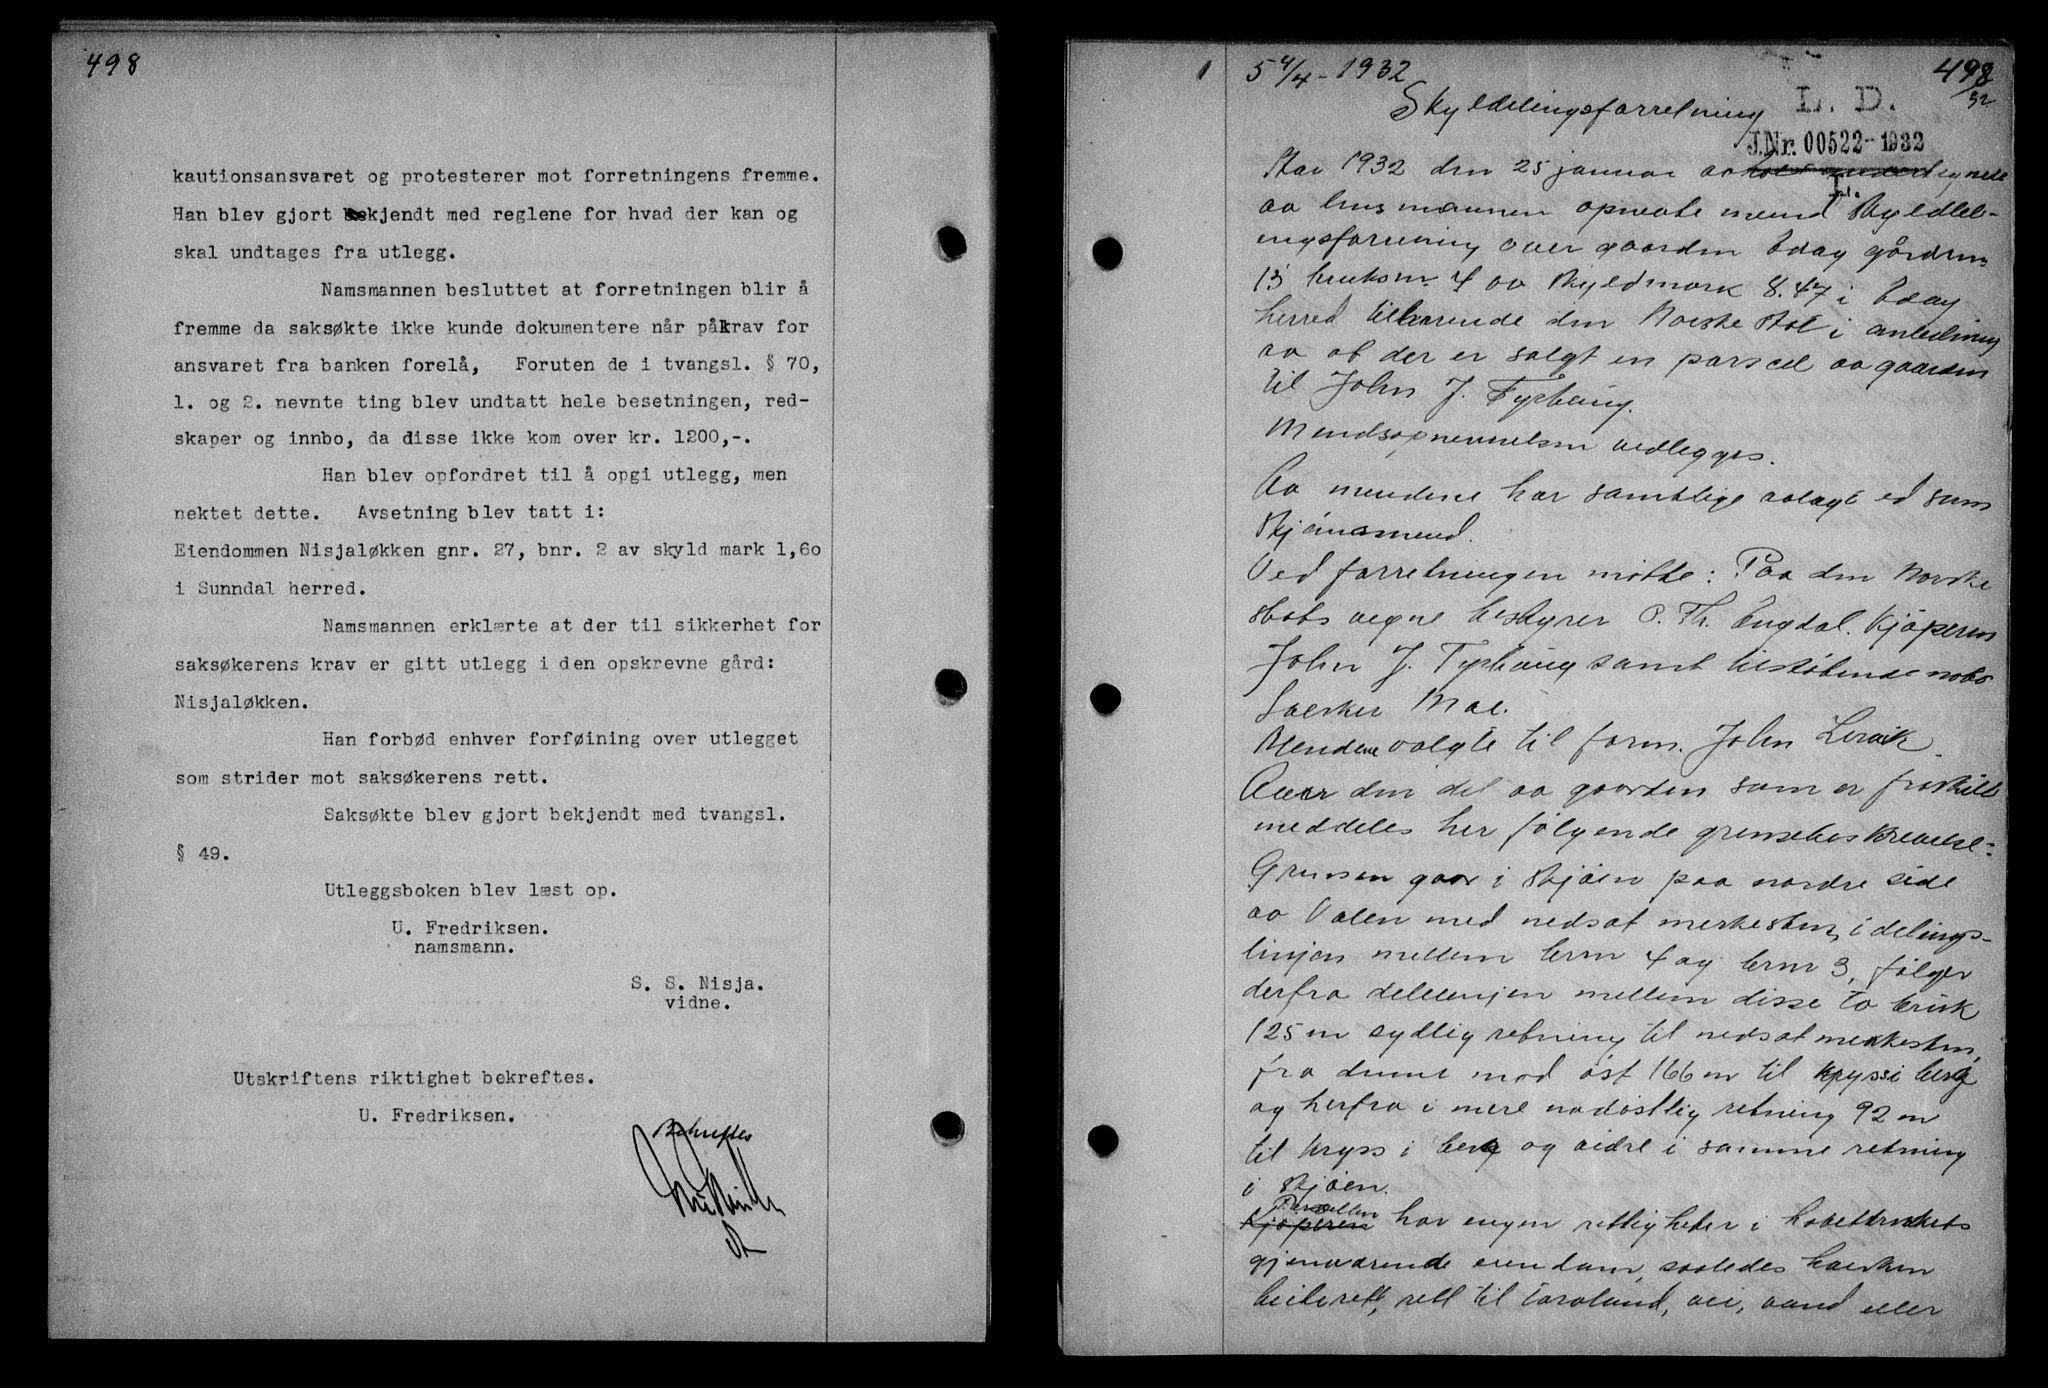 498
kautionsansvaret og protesterer mot forretningens fremme.
Han blev gjort bekjendt med reglene for hvad der kan og
skal undtages fra utlegg.
Namsmannen besluttet at forretningen blir å
fremme da saksøkte ikke kunde dokumentere når påkrav for
ansvaret fra banken forelå, Foruten de i tvangsl. § 70,
1. og 2. nevnte ting blev undtatt hele besetningen, red-
skaper og innbo, da disse ikke kom over kr. 1200,-.
Han blev opfordret til å opgi utlegg, men
nektet dette. Avsetning blev tatt i:
Eiendommen Nisjaløkken gnr. 27, bnr. 2 av skyld mark 1,60
i Sunndal herred.
Namsmannen erklærte at der til sikkerhet for
saksøkerens krav er gitt utlegg i den opskrevne gård:
Nisjaløkken.
Han forbød enhver forføining over utlegget
som strider mot saksøkerens rett.
Saksøkte blev gjort bekjendt med tvangsl.
§ 49.
Utleggsboken blev læst op.
U. Fredriksen.
namsmann.
S. S. Nisja.
vidne.
Utskriftens riktighet bekreftes.
U. Fredriksen.
Bekreftes
1 5 4/4-1932 498
32
L. D.
Skyldelingsforretning
J.Nr. 00522-1932
Aar 1932 den 25 januar
L.
av lensmannen opnevnte mend Skylddel-
ingsforrening over gaarden Edøy gårdsn
15 bruksn. 4 av Skyldmark 8.47 i Edøy
herred tilhørende den Norske Stat i anledning
av at der er solgt en parscel av gaarden
til John J.
Mendsopnevnelsen vedlegges.
Av mendene har samtlige avlagt ed som
Skjønsmend.
Ved forretningen møtte: Paa den Norske
Stats vegne bestyrer P. Th. Engdal. Kjøperen
John J. samt tilstøtende nabo
Sverker Moe.
Mendene valgte til form. John Lervik
Over den del av gaarden som er fraskilt
meddeles her følgende grensebeskrivelse:
Grensen gaar i Sjøen paa nordre side
av Valen med nedsat merkesten, i delings-
linjen mellem brn 4 og brn 3, følger
derfra delelinjen mellem disse to bruk
125 m sydlig retning til nedsat merkesten,
fra denne mod øst 166 m til kryss i berg
og herfra i mere nodøstlig retning 92 m
til kryss i berg og vidre i samme retning
i Sjøen.
Parsellen
Kjøperen har ingen rettigheter i hovedbrukets
gjenværende eiendom, saaledes hverken
beiterett, rett til tareland, vei, vand eller